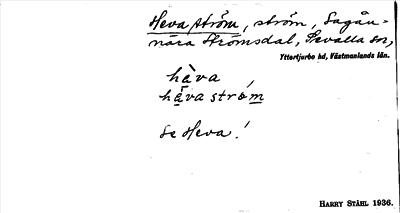 Heva ström, ström, Sagån-
nära Strömsdal, Sevalla sn,
Yttertjurbo hd, Västmanlands län.
hèva
hèva stróm
se Heva!
HARRY STÅHL 1936.